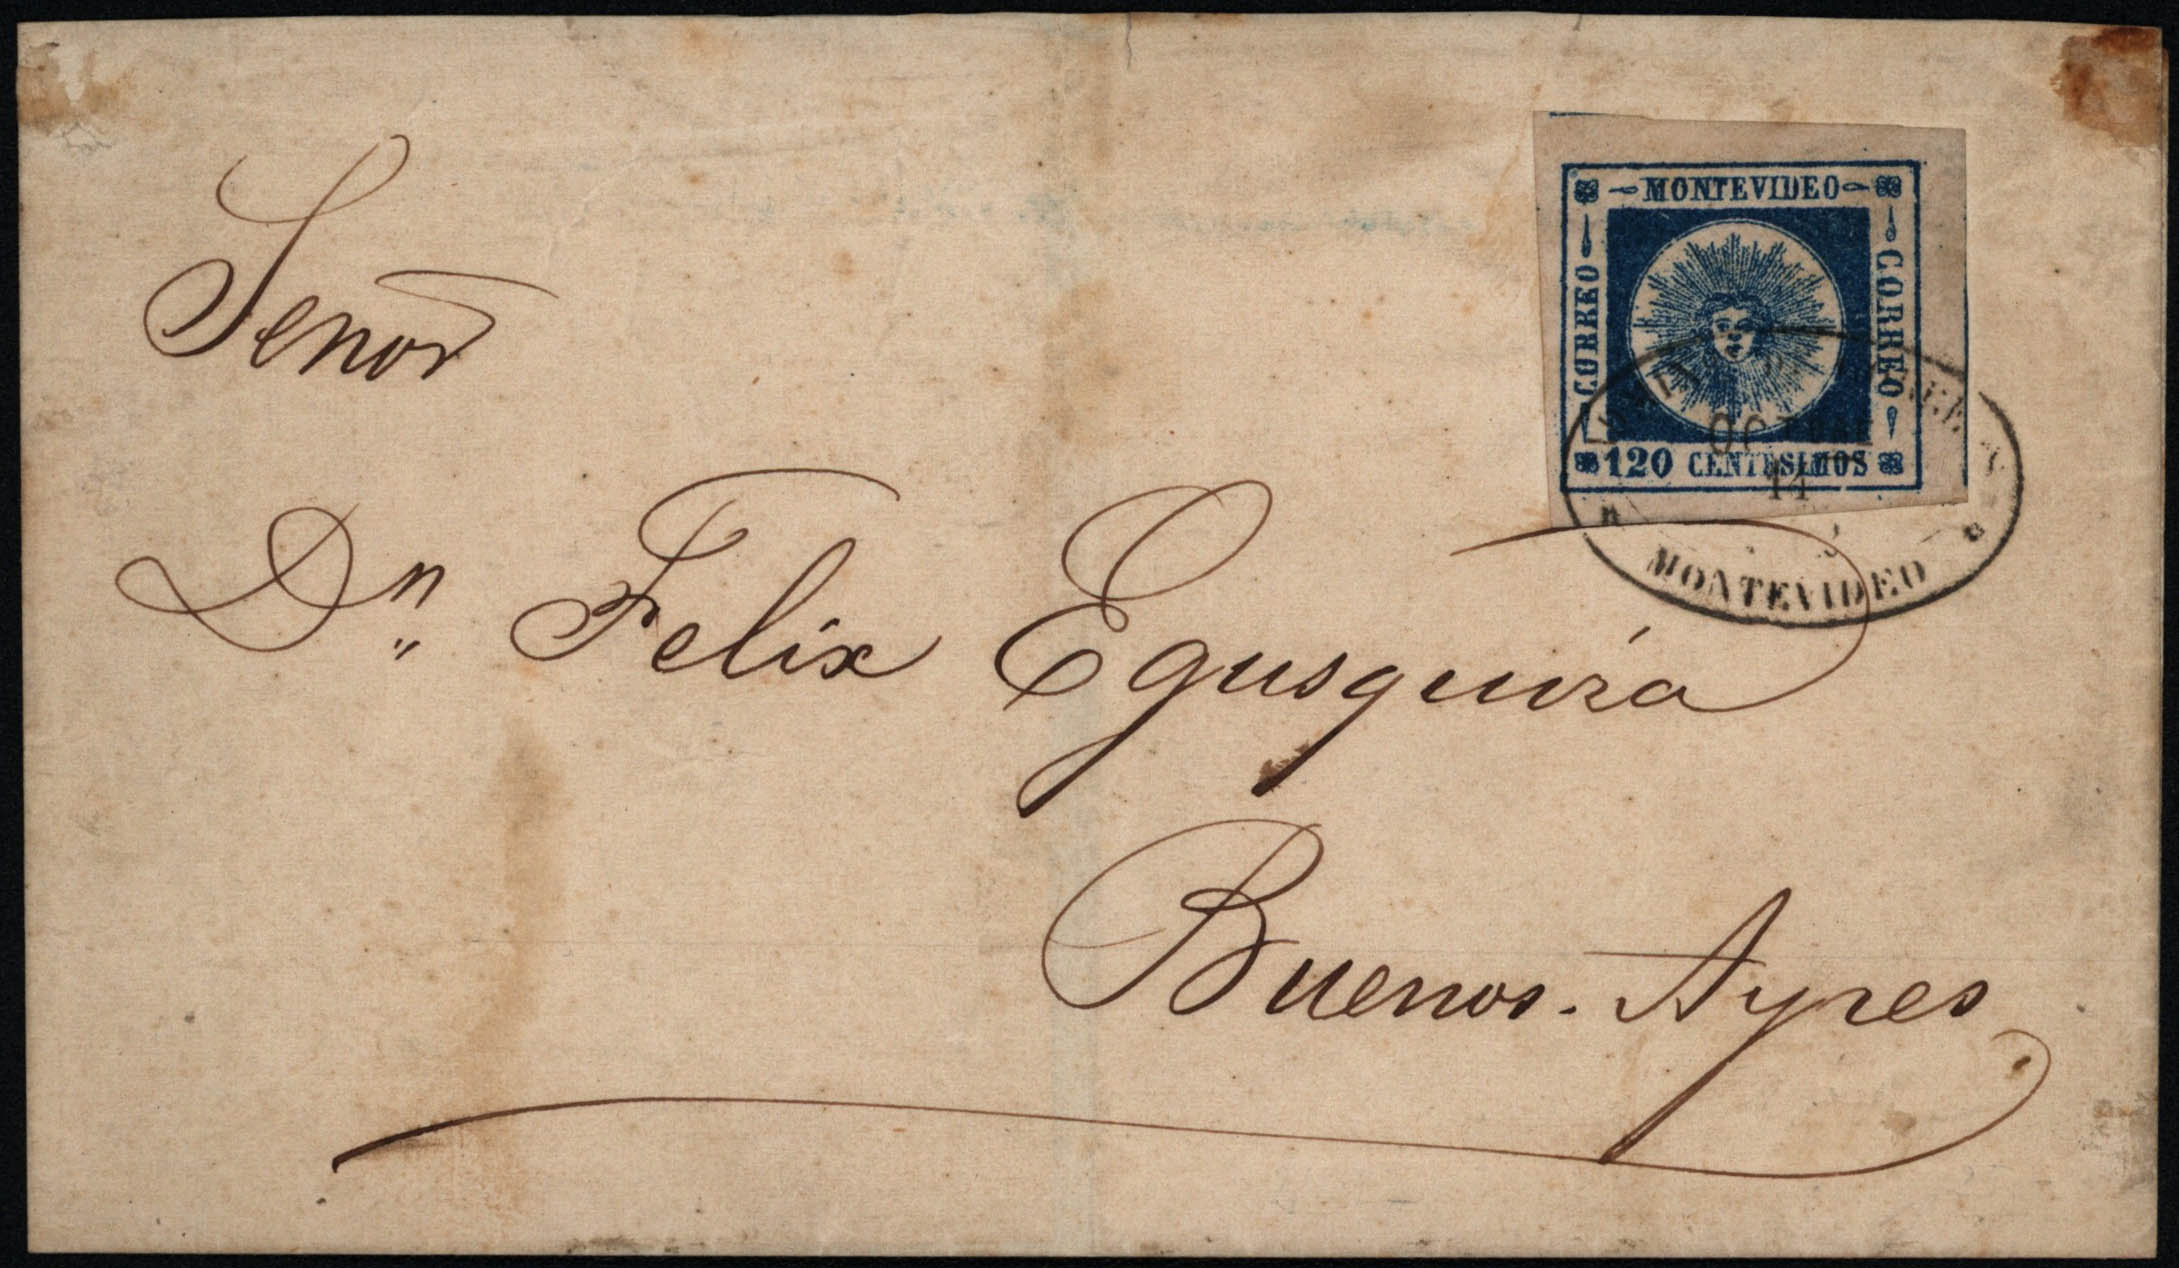 Señor
Dn. Felix Egusquiza
Buenos-Ayres
MONTEVIDEO
CORREO
CORREO
120 CENTESIMOS
14
MONTEVIDEO